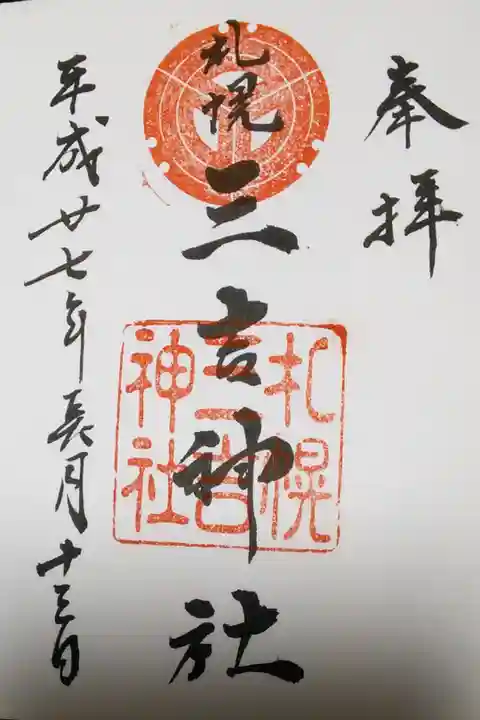 奉拝
札幌三吉神社
札幌
三吉
神社
平成廿七年長月十三日